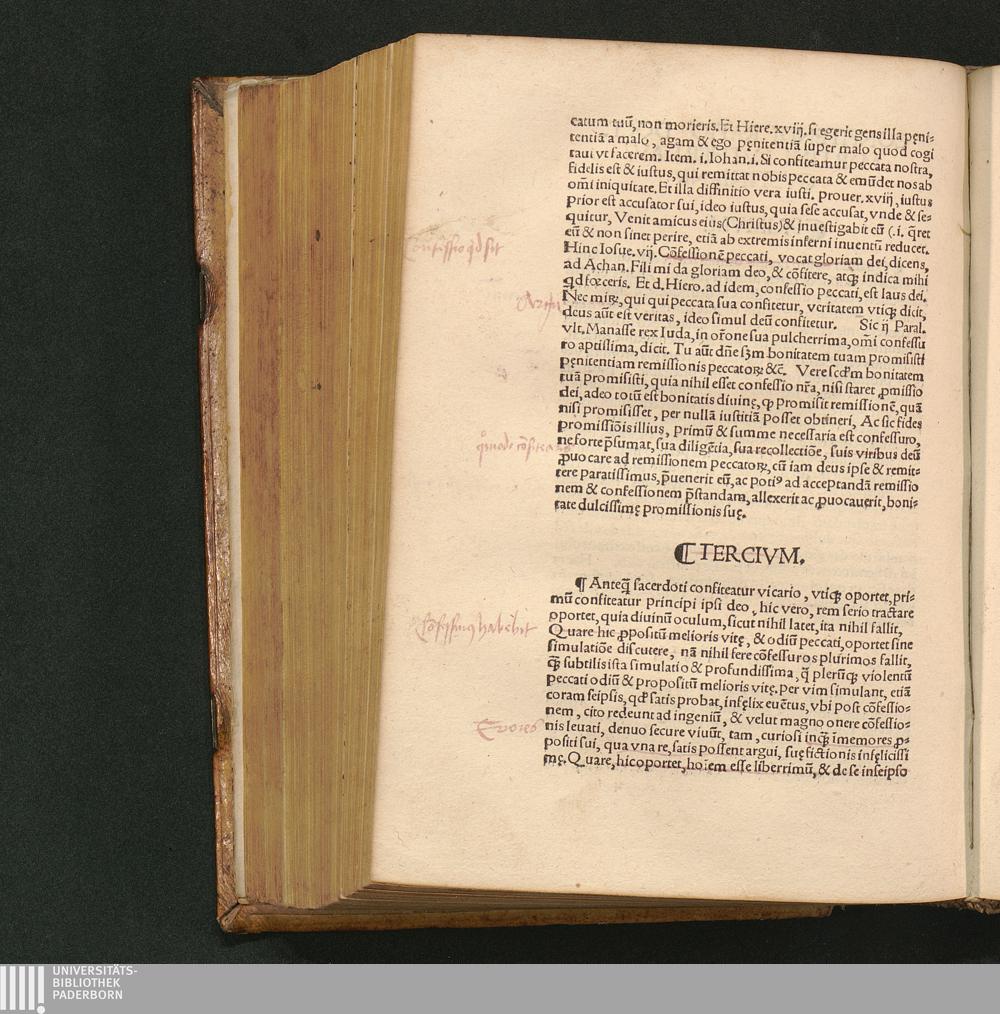 catum tuū, non morieris. Et Hiere. xviij. si egerit gens illa pęni-
tentiā a malo, agam & ego pęnitentiā super malo quod cogi
taui vt facerem. Item. i. Iohan. i. Si confiteamur peccata nostra,
fidelis est & iustus, qui remittat nobis peccata & emūdet nos ab
om̄i iniquitate. Et illa diffinitio vera iusti. prouer. xviij, iustus
prior est accusator sui, ideo iustus, quia sese accusat, vnde & se-
quitur, Venit amicus eius (Christus) & inuestigabit eū (.i. q̄ret
eū & non sinet perire, etiā ab extremis inferni inuentū reducet.
Hinc Iosue. vij. Cōfessionē peccati, vocat gloriam dei, dicens,
ad Achan. Fili mi da gloriam deo, & cōfitere, atqꝫ indica mihi
qd fœceris. Et d. Hiero. ad idem, confessio peccati, est laus dei.
Nec mirꝫ, qui qui peccata sua confitetur, veritatem vtiqꝫ dicit,
deus aūt est veritas, ideo simul deū confitetur. Sic ij Paral.
vlt. Manasse rex Iuda, in or̄one sua pulcherrima, om̄i confessu
ro aptissima, dicit. Tu aūt dn̄e sꝫm bonitatem tuam promisisti
pęnitentiam remissionis peccatorꝫ &c̄. Vere scd̄m bonitatem
tuā promisisti, quia nihil esset confessio nr̄a, nisi staret ꝓmissio
dei, adeo totū est bonitatis diuinę, ꝙ promisit remissionē, quā
nisi promisisset, per nullā iustitiā posset obtineri, Ac sic fides
promissiōis illius, primū & summe necessaria est confessuro,
ne forte p̄sumat, sua diligētia, sua recollectiōe, suis viribus deū
ꝓuocare ad remissionem peccatorꝫ, cū iam deus ipse & remit-
tere paratissimus, p̄uenerit eū, ac potiꝰ ad acceptandā remissio
nem & confessionem p̄standam, allexerit ac ꝓuocauerit, boni-
tate dulcissimę promissionis suę.
⸿ TERCIVM.
¶ Anteq̄ sacerdoti confiteatur vicario, vtiqꝫ oportet, pri-
mū confiteatur principi ipsi deo, hic vero, rem serio tractare
oportet, quia diuinū oculum, sicut nihil latet, ita nihil fallit,
Quare hic ꝓpositū melioris vitę, & odiū peccati, oportet sine
simulatiōe discutere, nā nihil fere cōfessuros plurimos fallit,
qꝫ subtilis ista simulatio & profundissima, q̄ plerūqꝫ violentū
peccati odiū & propositū melioris vitę. per vim simulant, etiā
coram seipsis, qd̄ satis probat, infęlix euētus, vbi post cōfessio-
nem, cito redeunt ad ingeniū, & velut magno onere cōfessio-
nis leuati, denuo secure viuūt, tam, curiosi inqꝫ īmemores ꝓ-
positi sui, qua vna re, satis possent argui, suę fictionis infęlicissi
mę. Quare, hic oportet, ho iem esse liberrimū, & de se inseipso
Errores
UNIVERSITÄTS-
BIBLIOTHEK
PADERBORN